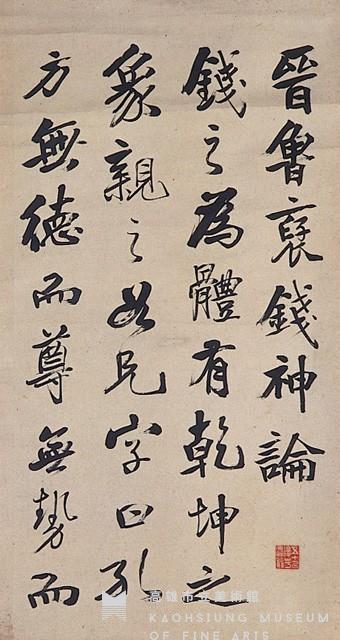 晉魯褒錢神論
錢之為體有乾坤之
象親之如兄字曰孔
方無德而尊無勢而
高雄市立美術館
KAOHSIUNG MUSEUM
OF FINE ARTS